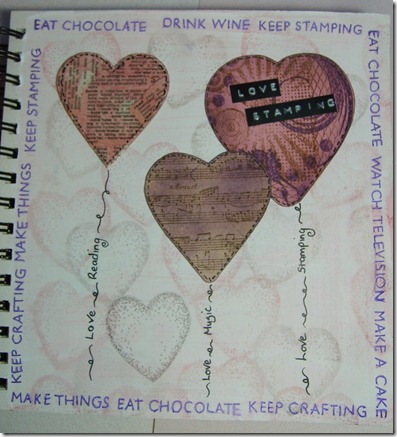 EAT CHOCOLATE DRINK WINE KEEP STAMPING
EAT CHOCOLATE WATCH TELEVISION MAKE A CAKE
MAKE THINGS EAT CHOCOLATE KEEP CRAFTING
KEEP CRAFTING MAKE THINGS KEEP STAMPING
LOVE
STAMPING
Love Reading
Love Music
Love Stamping